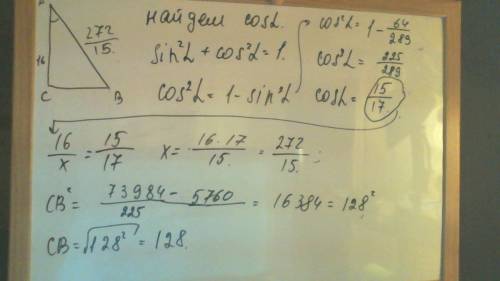 A
16
272/15.
C
B
найдем cosα.
sin²α + cos²α = 1.
cos²α = 1 - sin²α
cos²α = 1 - 64/289
cos²α = 225/289
cosα = 15/17
16/x = 15/17 x = 16.17/15. = 272/15. ;
CB² = 73984 - 5760/225 = 16384 = 128²
CB = √128² = 128.